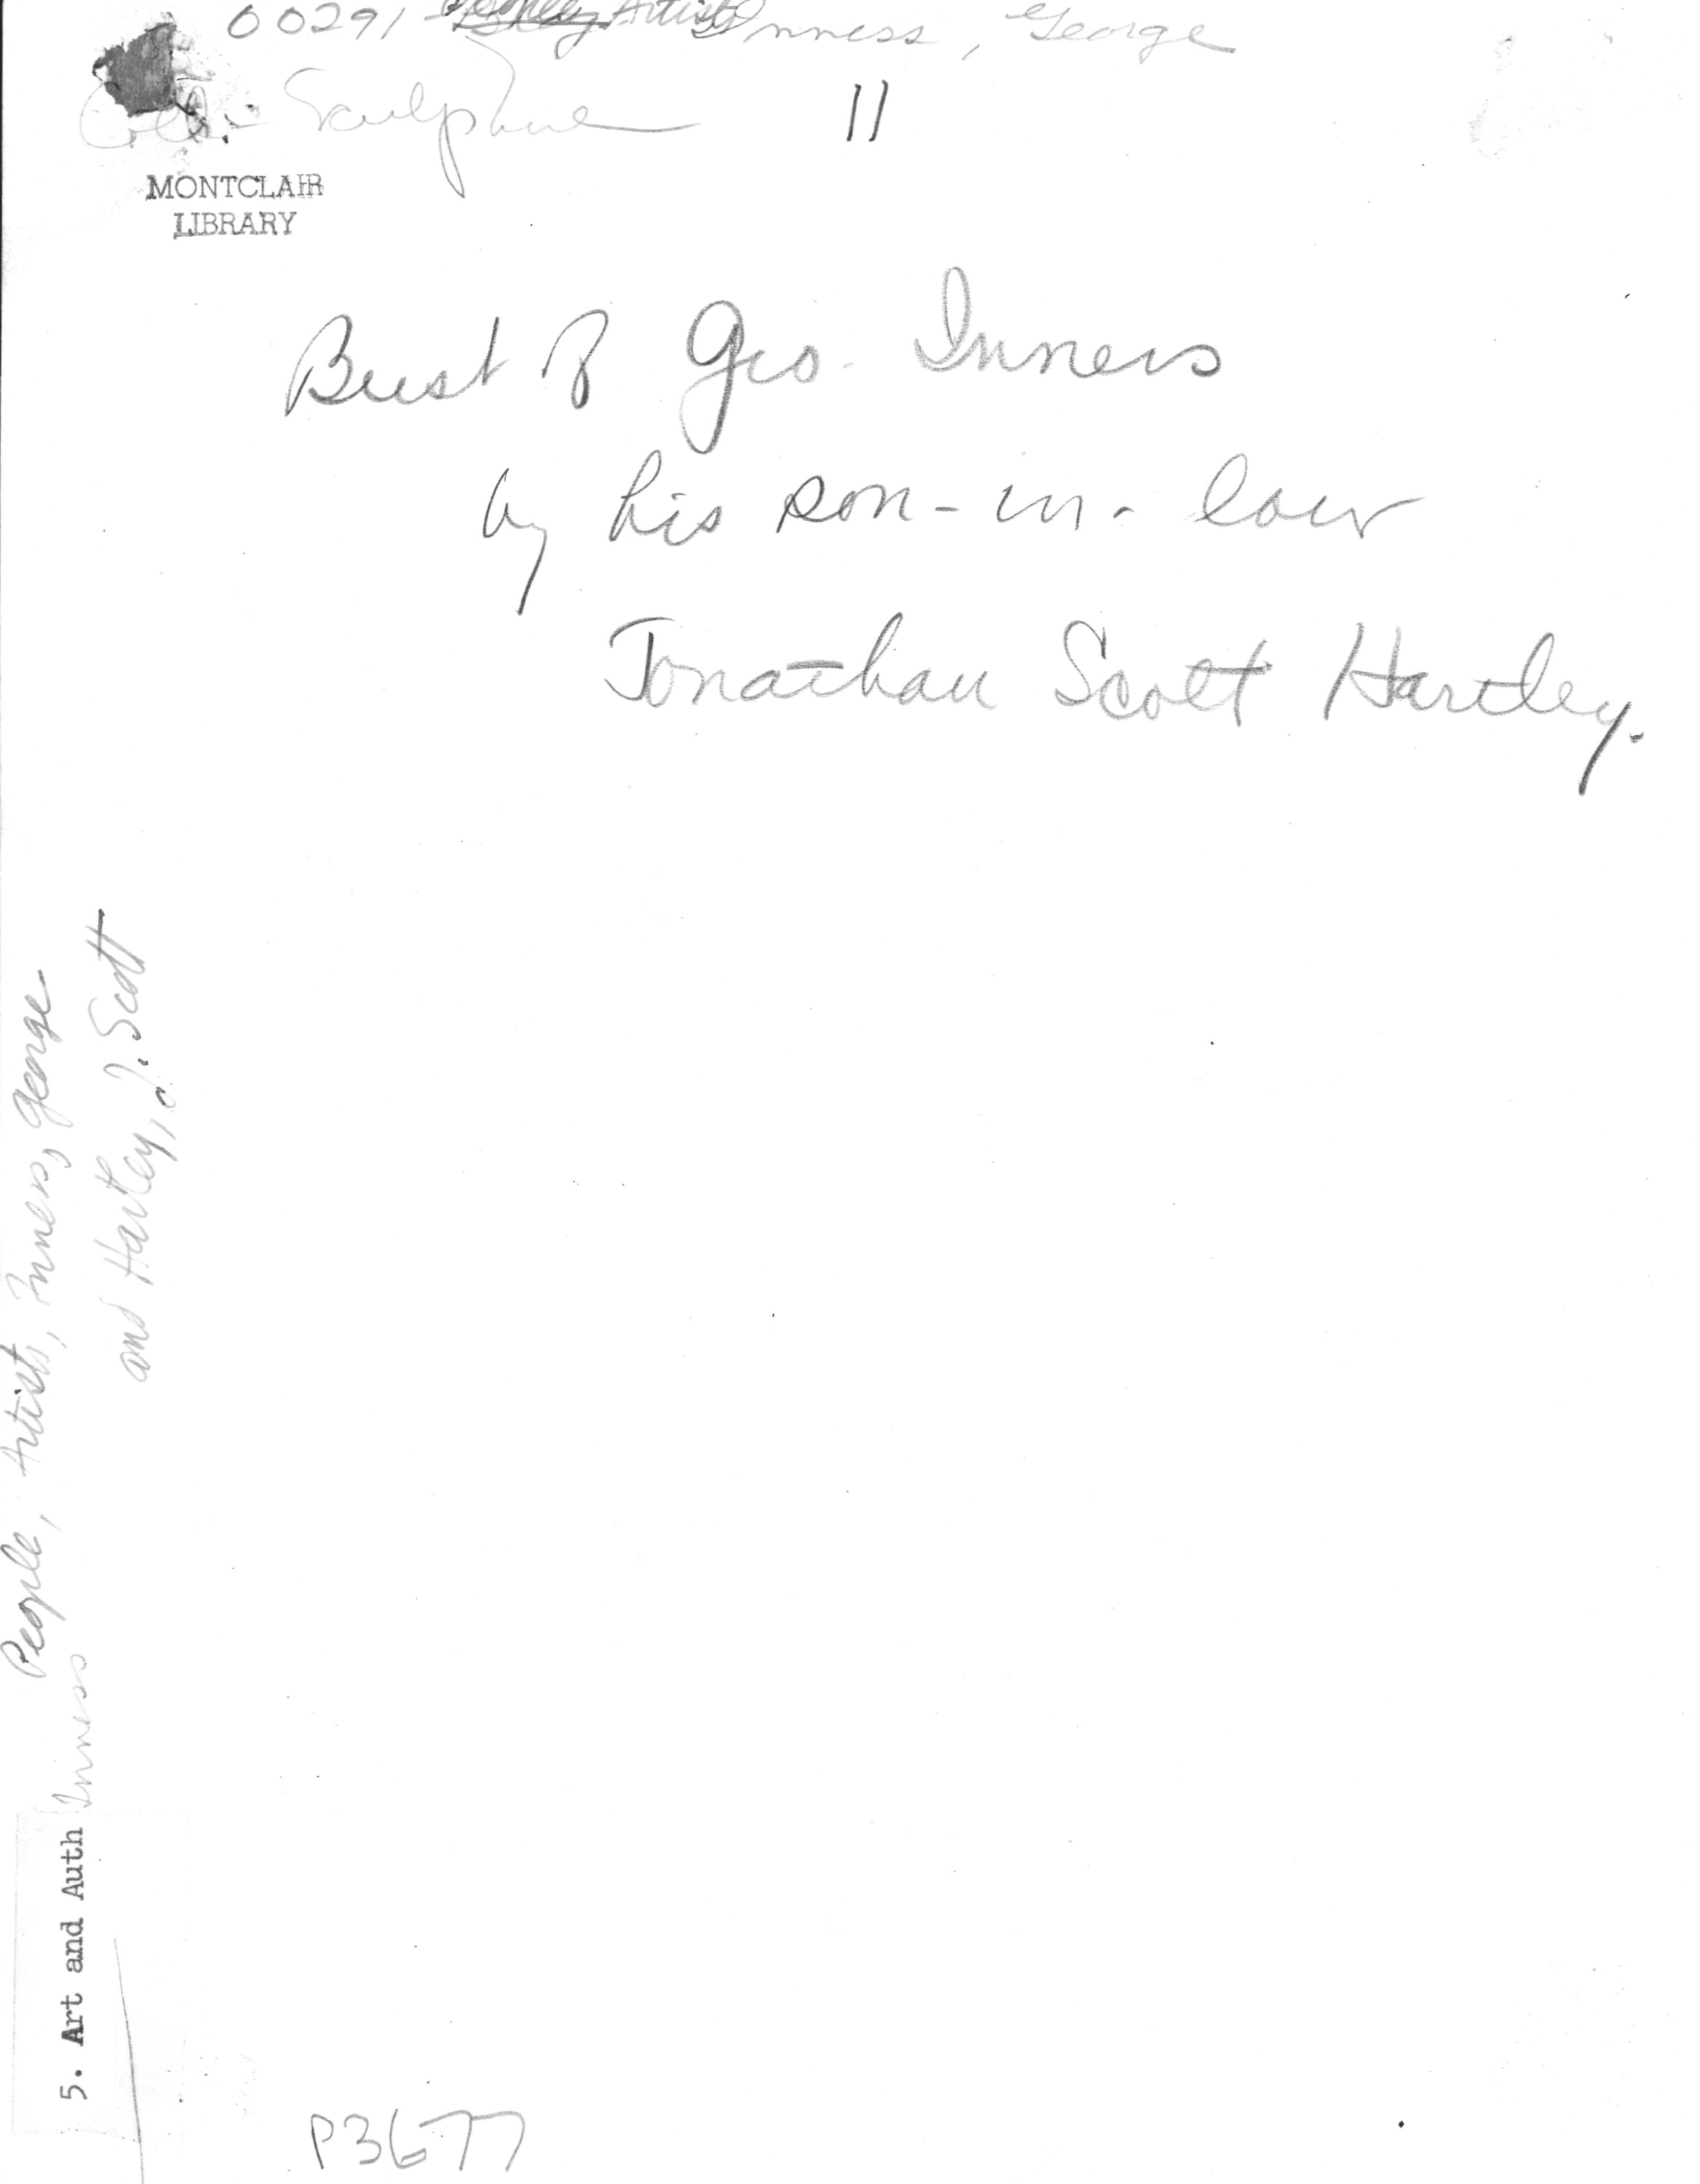 00291 Artists Inness, George
Sculpture 11
MONTCLAIR
LIBRARY
Bust of Geo. Inness
by his son-in-law
Jonathan Scott Hartley.
People, Artists, Inness, George
and Hartley, J. Scott
Inness
5. Art and Auth
P3677